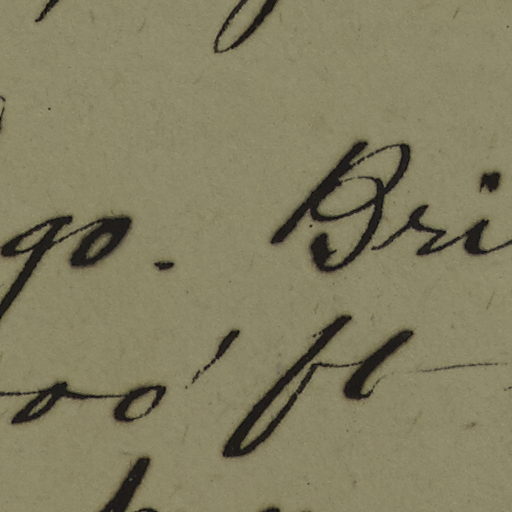 go. Bri
oo' fl